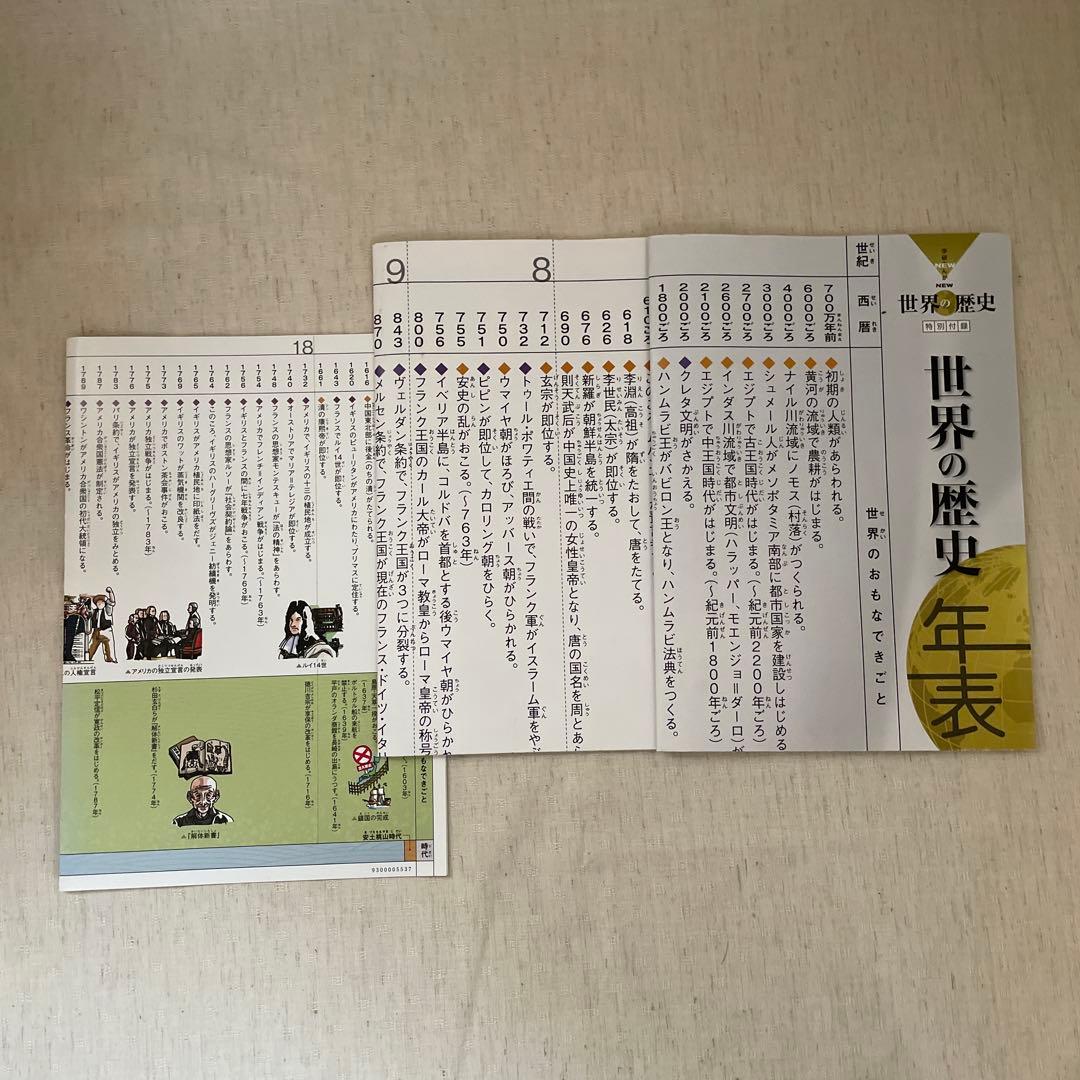 NEW
NEW
世界の歴史
特別付録
世界の歴史
年表
世紀
西暦
世界のおもなできごと
700万年前 初期の人類があらわれる。
6000ごろ 黄河の流域で農耕がはじまる。
4000ごろ ナイル川流域にノモス(村落)がつくられる。
3000ごろ シュメール人がメソポタミア南部に都市国家を建設しはじめる
2700ごろ エジプトで古王国時代がはじまる。(〜紀元前2200年ごろ)
2600ごろ インダス川流域で都市文明(ハラッパー、モエンジョ=ダーロ)が
2100ごろ エジプトで中王国時代がはじまる。(〜紀元前1800年ごろ)
2000ごろ クレタ文明がさかえる。
1800ごろ ハンムラビ王がバビロン王となり、ハンムラビ法典をつくる。
8
9
610ごろ
618 李淵(高祖)が隋をたおして、唐をたてる。
626 李世民(太宗)が即位する。
676 新羅が朝鮮半島を統一する。
690 則天武后が中国史上唯一の女性皇帝となり、唐の国名を周とあら
712 玄宗が即位する。
732 トゥール・ポワティエ間の戦いで、フランク軍がイスラーム軍をやぶ
750 ウマイヤ朝がほろび、アッバース朝がひらかれる。
751 ピピンが即位して、カロリング朝をひらく。
755 安史の乱がおこる。(〜763年)
756 イベリア半島に、コルドバを首都とする後ウマイヤ朝がひらかれ
800 フランク王国のカール大帝がローマ教皇からローマ皇帝の称号
843 ヴェルダン条約で、フランク王国が3つに分裂する。
870 メルセン条約で、フランク王国が現在のフランス・ドイツ・イタリ
18
1616 中国東北部に後金(のちの清)がたてられる。
1620 イギリスのピューリタンがアメリカにわたり、プリマスに定住する。
1643 フランスでルイ14世が即位する。
1661 清の康熙帝が即位する。
1732 アメリカで、イギリスの十三の植民地が成立する。
1740 オーストリアでマリア=テレジアが即位する。
1748 フランスの思想家モンテスキューが『法の精神』をあらわす。
1754 アメリカでフレンチ=インディアン戦争がはじまる。(〜1763年)
1756 イギリスとフランスの間に七年戦争がおこる。(〜1763年)
1762 フランスの思想家ルソーが『社会契約論』をあらわす。
1764 このころ、イギリスのハーグリーヴズがジェニー紡績機を発明する。
1765 イギリスがアメリカ植民地に印紙法をだす。
1769 イギリスのワットが蒸気機関を改良する。
1773 アメリカでボストン茶会事件がおこる。
1775 アメリカ独立戦争がはじまる。(〜1783年)
1776 アメリカが独立宣言を発表する。
1783 パリ条約で、イギリスがアメリカの独立をみとめる。
1787 アメリカ合衆国憲法が制定される。
1789 ワシントンがアメリカ合衆国の初代大統領になる。
フランス革命がはじまる。
ルイ14世
アメリカの独立宣言の発表
の人権宣言
もなできごと
(1603年)
(1637年)
ポルトガル船の来航を禁止する。(1639年)
平戸のオランダ商館を長崎の出島にうつす。(1641年)
鎖国の完成
徳川吉宗が享保の改革をはじめる。(1716年)
杉田玄白らが『解体新書』をだす。(1774年)
松平定信が寛政の改革をはじめる。(1787年)
『解体新書』
安土桃山時代
時代
9300005537